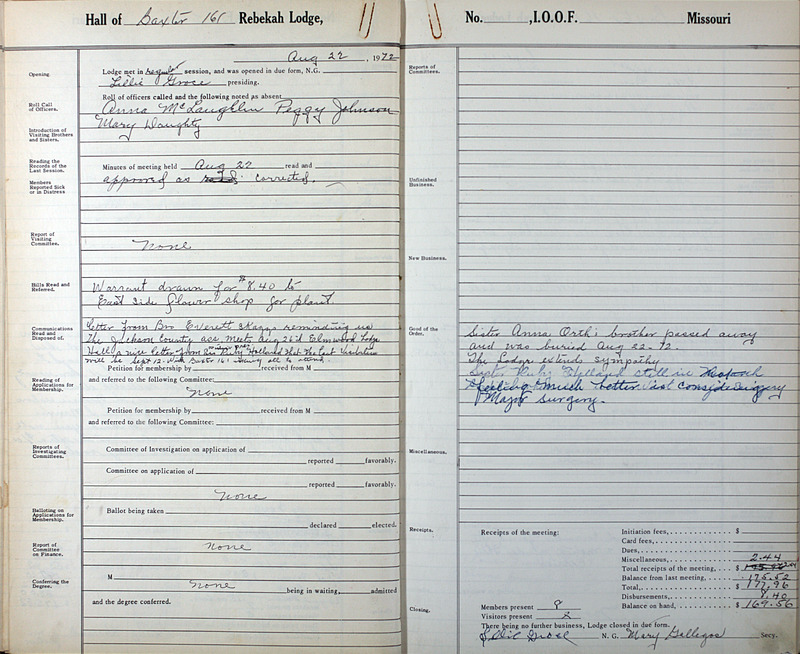 Hall of Baxter 161 Rebekah Lodge,
Aug 22, 1972
Opening.
Lodge met in regular session, and was opened in due form, N.G.
Lillie Grose presiding.
Roll Call of Officers.
Roll of officers called and the following noted as absent
Anna McLaughlin Peggy Johnson
Mary Doughty
Introduction of Visiting Brothers and Sisters.
Reading the Records of the Last Session.
Minutes of meeting held Aug 22 read and
approved as corrected.
Members Reported Sick or in Distress
Report of Visiting Committee.
None
Bills Read and Referred.
Warrant drawn for $8.40 to
East Side flower shop for plant
Communications Read and Disposed of.
letter from Bro Everett Skaggs reminding us
The Jackson County ass. meets Aug 26th Elmwood Lodge
Hall a nice letter from Ruby Holland that the last
will be Sept 12 - with Baxter 161 all to attend.
Petition for membership by received from M
and referred to the following Committee:
Reading of Applications for Membership.
None
Petition for membership by received from M
and referred to the following Committee:
Reports of Investigating Committees.
Committee of Investigation on application of
reported favorably.
Committee on application of
reported favorably.
None
Balloting on Applications for Membership.
Ballot being taken
declared elected.
Report of Committee on Finance.
None
Conferring the Degree.
M
None being in waiting, admitted
and the degree conferred.
No. ,I.O.O.F. Missouri
Reports of Committees.
Unfinished Business.
New Business.
Good of the Order.
Sister Anna Orth: brother passed away
and was buried Aug 22-72.
The Lodge extend sympathy
Sister Ruby Holland still in
feeling much better
Major Surgery.
Miscellaneous.
Receipts.
Receipts of the meeting:
Initiation fees, $
Card fees,
Dues,
Miscellaneous, 2.44
Total receipts of the meeting, $
Balance from last meeting, 175.52
Total, $ 177.96
Disbursements, 8.40
Balance on hand, $ 169.56
Closing.
Members present 9
Visitors present
There being no further business, Lodge closed in due form.
Lillie Grose N. G. Mary Gallegos Secy.